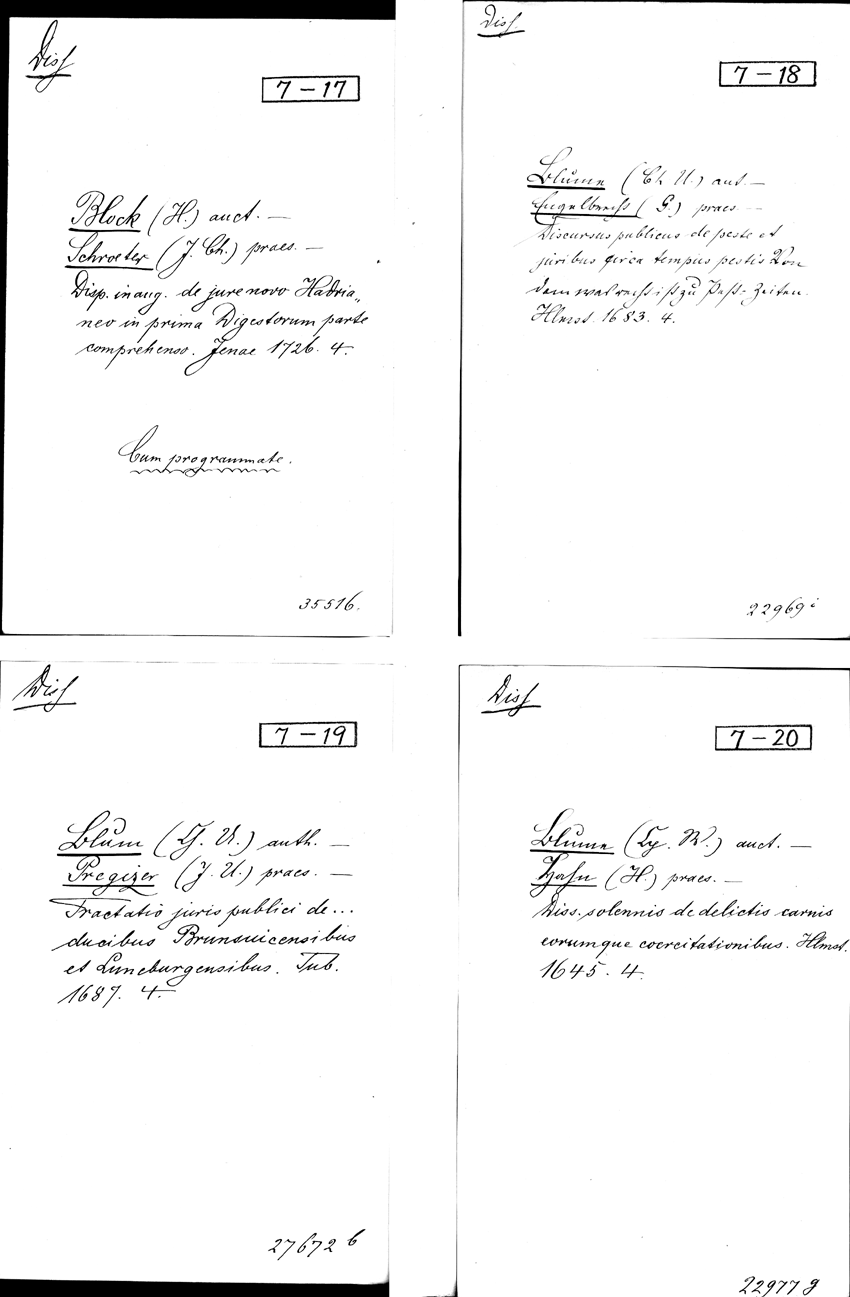 Diss
7-17
Block (H.) auct. —
Schroeter (J. Ch.) praes. —
Disp. inaug. de jure novo Hadria„
neo in prima Digestorum parte
comprehenso. Jenae 1726. 4.
Cum programmate.
35516.
Diss.
7-18
Blume (Ch U.) aut. —
Engelbrecht (G.) praes. —
Discursus publicus de peste et
juribus circa tempus pestis Von
dem was recht ist zu Pest-Zeiten.
Hlmst. 1683. 4.
22969 i
Diss
7-19
Blum (G. U.) auth. —
Pregizer (J. U.) praes. —
Tractatio juris publici de ...
ducibus Brunsuicensibus
et Luneburgensibus. Tub.
1687. 4.
27672 b
Diss
7-20
Blume (Cp. W.) auct. —
Hahn (H.) praes. —
Diss. solennis de delictis carnis
eorumque coercitationibus. Hlmst.
1645. 4.
22977 g